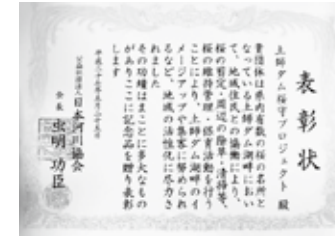 表彰状
土師ダム桜守プロジェクト 殿
貴団体は県内有数の桜の名所と
なっている土師ダム湖畔におい
て、地域住民との協働により、
桜の剪定・周辺の除草・清掃等、
桜の維持管理・保育活動を行う
ことにより、土師ダム湖畔のイ
メージアップや集客に努められ
るなど、地域の活性化に尽力さ
れました
その功績はまことに多大なもの
がありここに記念品を贈り表彰
します
平成二十五年五月二十五日
公益社団法人 日本河川協会
会長 虫明功臣